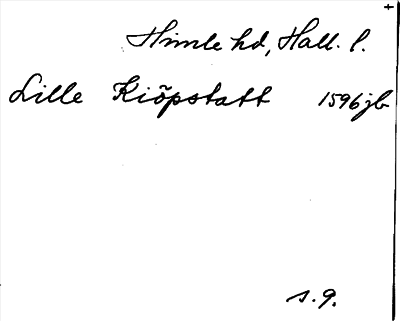 Himle hd, Hall. l.
Lille Kiöpstatt 1596 jb
s. 9.